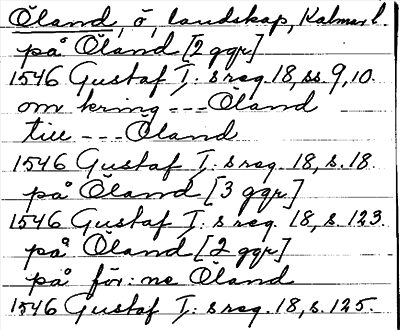 Öland, ö, landskap, Kalmar l.
på Öland [2 ggr]
1546 Gustaf I: s reg. 18, ss. 9, 10.
om kring --- Öland
till --- Öland
1546 Gustaf I: s reg. 18, s. 18.
på Öland [3 ggr]
1546 Gustaf I: s reg. 18, s. 123.
på Öland [2 ggr]
på för: ne Öland
1546 Gustaf I: s reg. 18, s. 125.